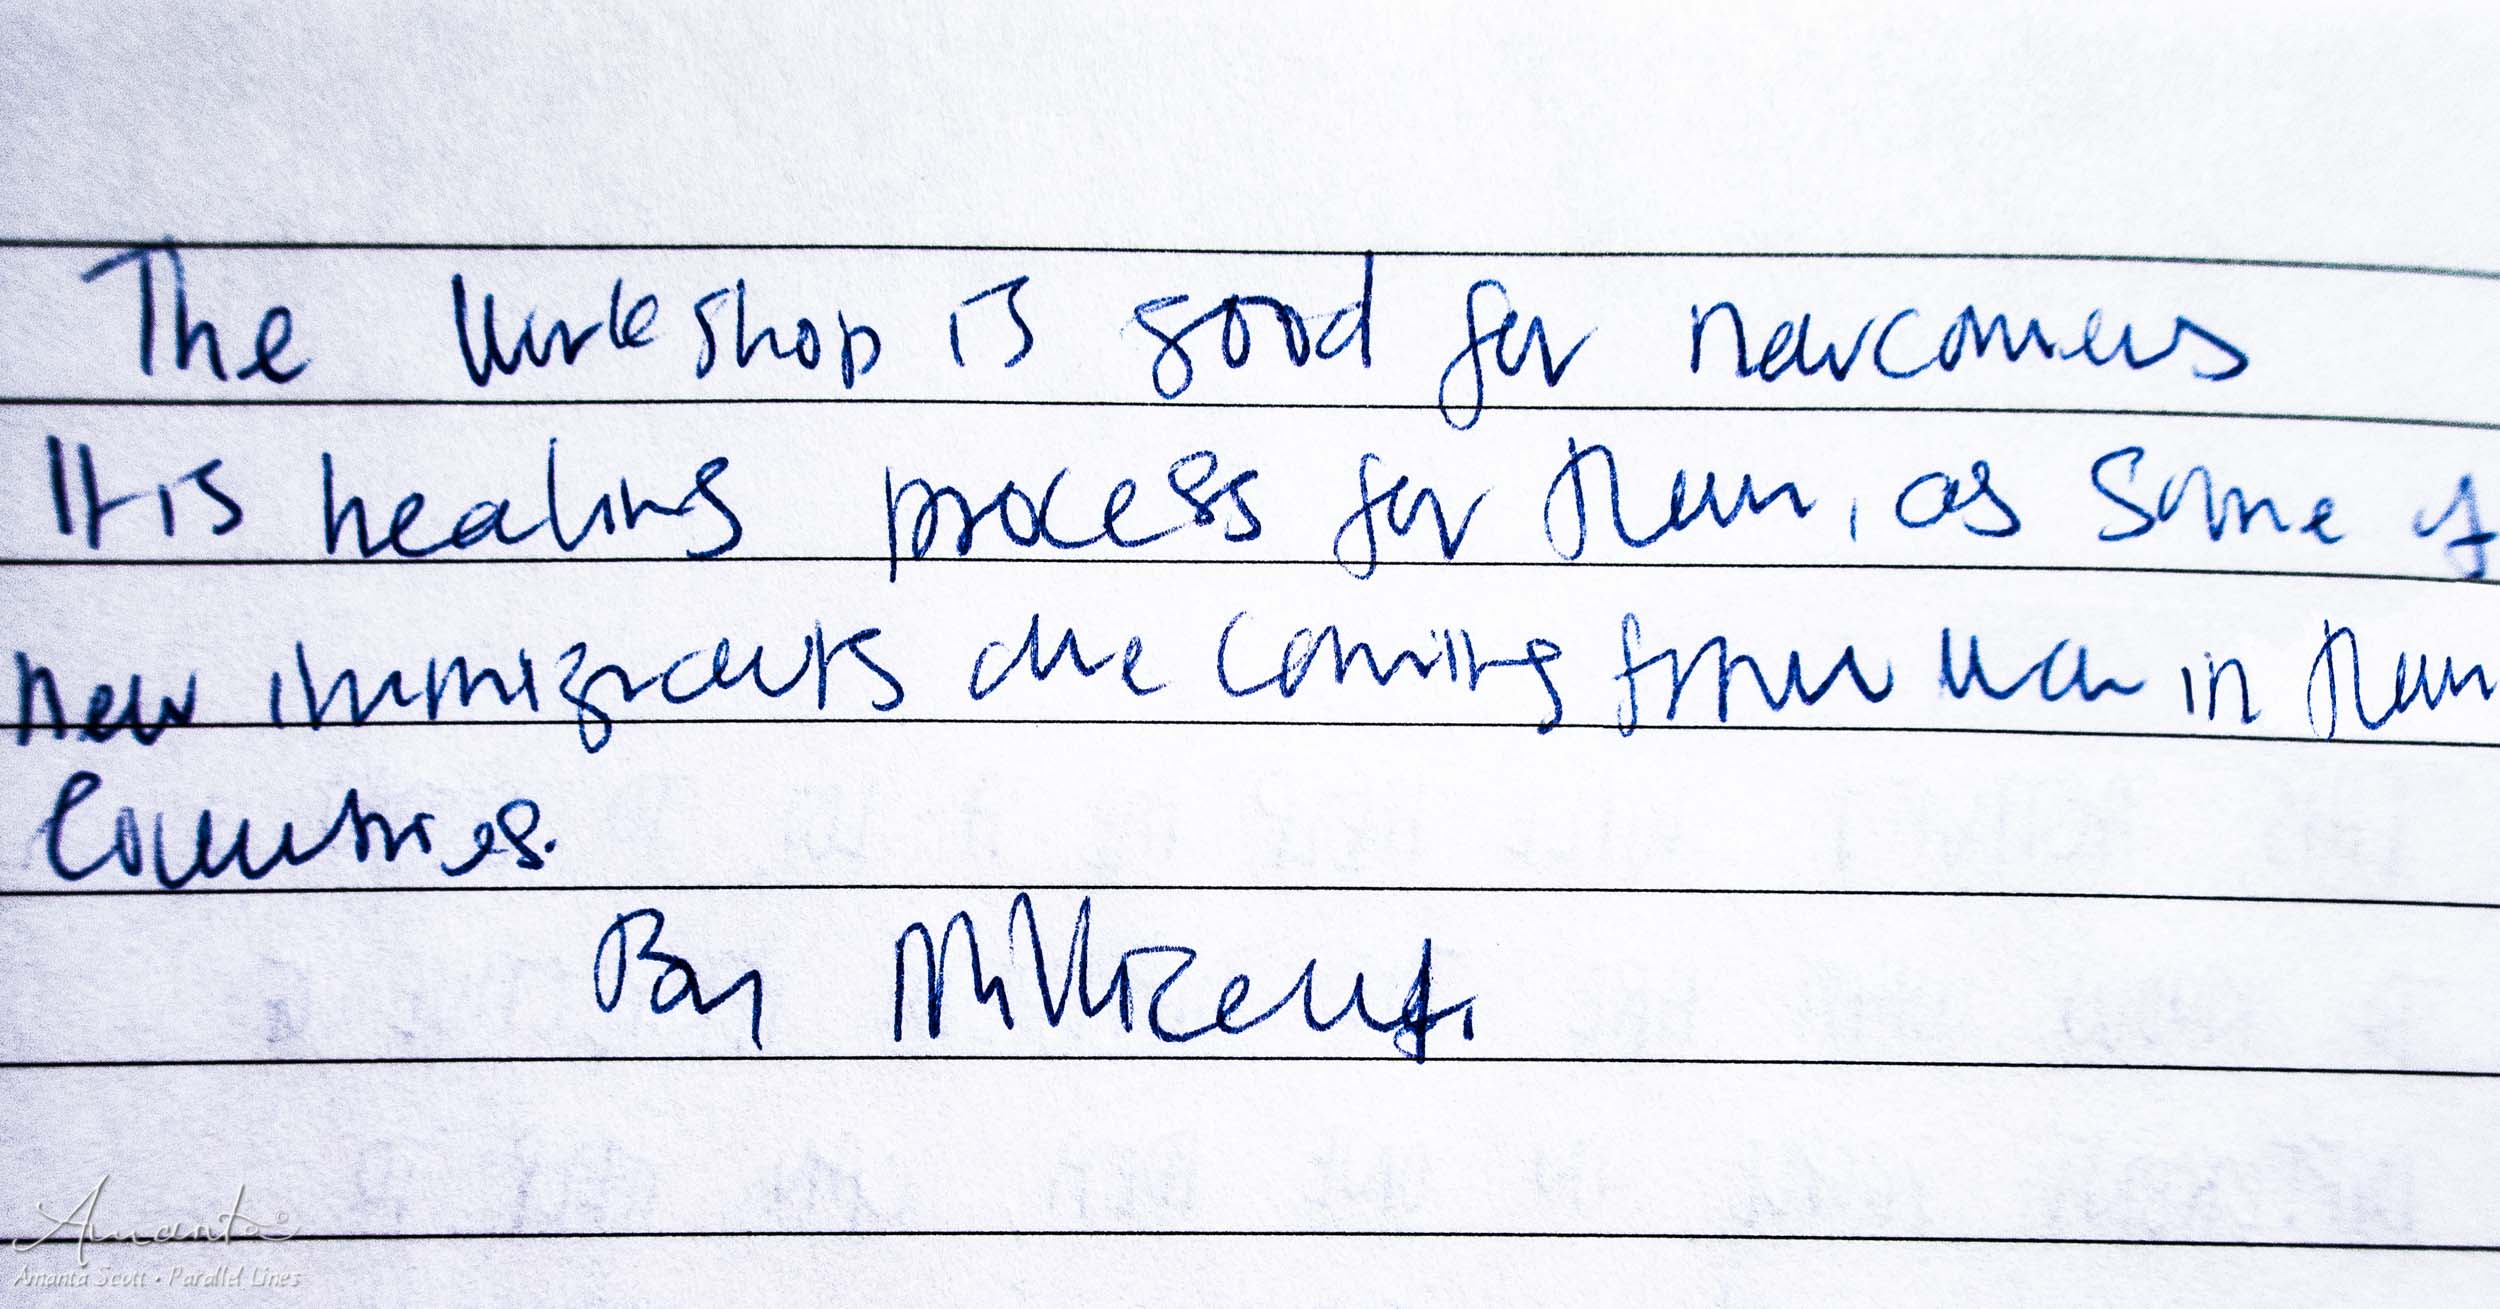 The workshop is good for newcomers
It is healing process for them, as some of
new immigrants are coming from war in them
Countries.
By Millicent.
Amanta ©
Amanta Scott • Parallel Lines